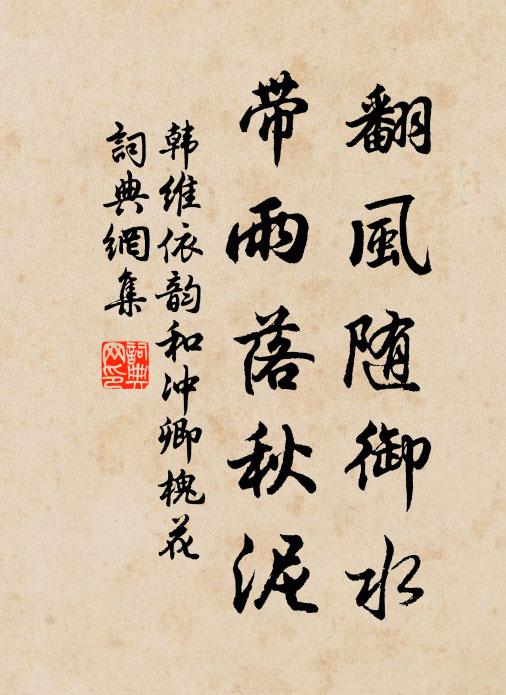 翻風随御水
带雨落秋泥
韩维依韵和冲卿槐花
詞典網集
詞典网印